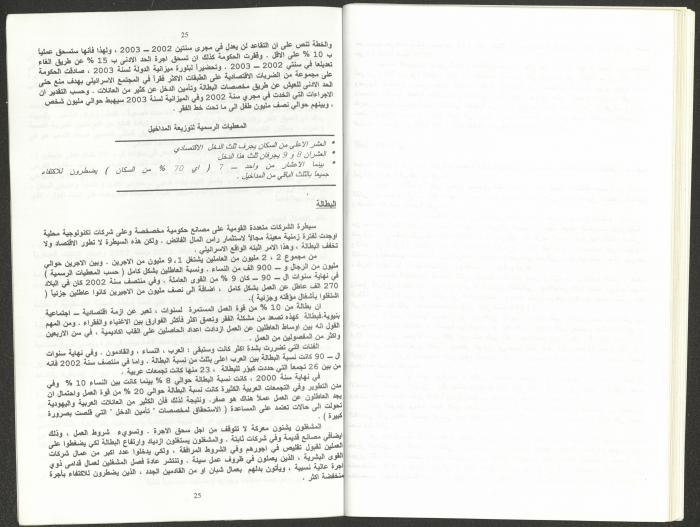 25
والخطة تنص على ان التقاعد لن يعدل في مجرى سنتين 2002 – 2003 ، ولهذا فأنها ستسحق عملياً
ب 10 % على الاقل . وقررت الحكومة كذلك ان تسحق اجرة الحد الادنى ب 15 % عن طريق الغاء
تعديلها في سنتي 2002 – 2003 . وتحضيراً لبلورة ميزانية الدولة لسنة 2003 ، صادقت الحكومة
على مجموعة من الضربات الاقتصادية على الطبقات الاكثر فقراً في المجتمع الاسرائيلي بهدف منع حتى
الحد الادنى للعيش عن طريق مخصصات البطالة وتأمين الدخل عن كثير من العائلات . وحسب التقدير ان
الاجراءات التي اتخذت في مجرى سنة 2002 وفي الميزانية لسنة 2003 سيهبط حوالي مليون شخص
، وبينهم حوالي نصف مليون طفل الى ما تحت خط الفقر .
المعطيات الرسمية لتوزيعة المداخيل
* العشر الاعلى من السكان يجرف ثلث الدخل الاقتصادي
* العشران 8 و 9 يجرفان ثلث هذا الدخل
* بينما الاعشار من واحد – 7 ( اي 70 % من السكان ) يضطرون للاكتفاء
جميعاً بالثلث الباقي من المداخيل .
البطالة
سيطرة الشركات متعددة القومية على مصانع حكومية مخصخصة وعلى شركات تكنولوجية محلية
اوجدت لفترة زمنية معينة مجالاً لاستثمار راس المال الفائض . ولكن هذه السيطرة لا تطور الاقتصاد ولا
تخفف البطالة ، وهذا الامر اثبته الواقع الاسرائيلي .
من مجموع 2 ، 2 مليون من العاملين يشتغل 9,1 مليون من الاجرين . وبين الاجرين حوالي
مليون من الرجال و – 900 الف من النساء . ونسبة العاطلين بشكل كامل ( حسب المعطيات الرسمية )
في نهاية سنوات ال – 90 كان 9 % من القوى العاملة . وفي منتصف سنة 2002 كان في البلاد
270 الف عاطل عن العمل بشكل كامل ، اضافة الى نصف مليون من الاجيرين كانوا عاطلين جزئياً (
اشتغلوا بأشغال مؤقتة وجزئية ).
ان بطالة من 10 % من قوة العمل المستمرة لسنوات ، تعبر عن ازمة اقتصادية – اجتماعية
بنيوية.فبطالة كهذه تصعد من مشكلة الفقر وتعمق اكثر فأكثر الفوارق بين الاغنياء والفقراء . ومن المهم
القول انه بين اوساط العاطلين عن العمل ازدادت اعداد الحاصلين على القاب اكاديمية ، في سن الاربعين
واكثر من المفصولين من العمل .
الفئات التي تضررت بشدة اكثر كانت وستبقى : العرب ، النساء ، والقادمون . وفي نهاية سنوات
ال – 90 كانت نسبة البطالة بين العرب اعلى بثلث من نسبة البطالة . واما في منتصف سنة 2002 فأنه
من بين 26 تجمعاً التي حددت كبؤر للبطالة ، 23 منها كانت تجمعات عربية .
في نهاية سنة 2000 ، كانت نسبة البطالة حوالي 8 % بينما كانت بين النساء 10 % وفي
مدن التطوير وفي التجمعات العربية الكثيرة كانت نسبة البطالة حوالي 20 % من قوة العمل واحتمال ان
يجد العاطلون عن العمل عملاً هناك هو صفر. ونتيجة لذلك فأن الكثير من العائلات العربية واليهودية
تحولت الى حالات تعتمد على المساعدة ( الاستحقاق لمخصصات " تأمين الدخل " التي قلصت بصرورة
كبيرة ) .
المشغلون يشنون معركة لا تتوقف من اجل سحق الاجرة . وتسويء شروط العمل ، وذلك
ايضافي مصانع قديمة وفي شركات ثابتة . والمشغلون يستغلون ازدياد وارتفاع البطالة لكي يضغطوا على
العملين لقبول تقليص في اجورهم وفي الشروط المرافقة ، ولكي يدخلوا عدد اكبر من عمال شركات
القوى البشرية ، الذين يعملون في ظروف عمل سيئة . وتنتشر عادة فصل المشغلين لعمال قدامى ذوي
اجرة عالية نسبية ، ويأتون بدلهم بعمال شبان او من القادمين الجدد ، الذين يضطرون للاكتفاء بأجرة
منخفضة اكثر .
25